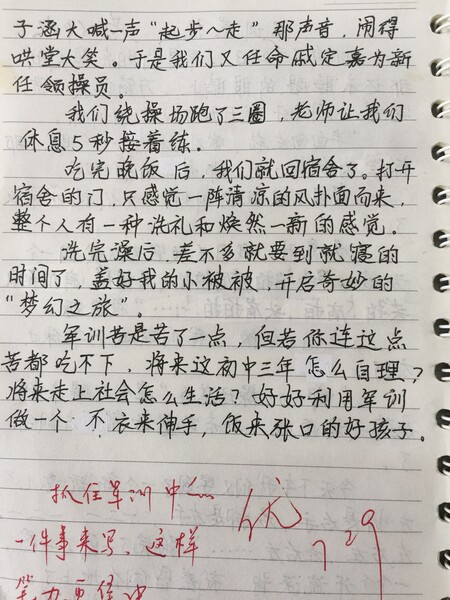 子涵大喊一声“起步~走”那声音，闹得
哄堂大笑。于是我们又任命戚定嘉为新
任领操员。
我们绕操场跑了三圈，老师让我们
休息5秒接着练.
吃完晚饭后，我们就回宿舍了。打开
宿舍的门，只感觉一阵清凉的风扑面而来，
整个人有一种洗礼和焕然一新的感觉。
洗完澡后，差不多就要到就寝的
时间了，盖好我的小被被，开启奇妙的
“梦幻之旅”。
军训苦是苦了一点，但若你连这点
苦都吃不下，将来这初中三年怎么自理？
将来走上社会怎么生活？好好利用军训
做一个不衣来伸手，饭来张口的好孩子。
抓住军训中
一件事来写，这样
优